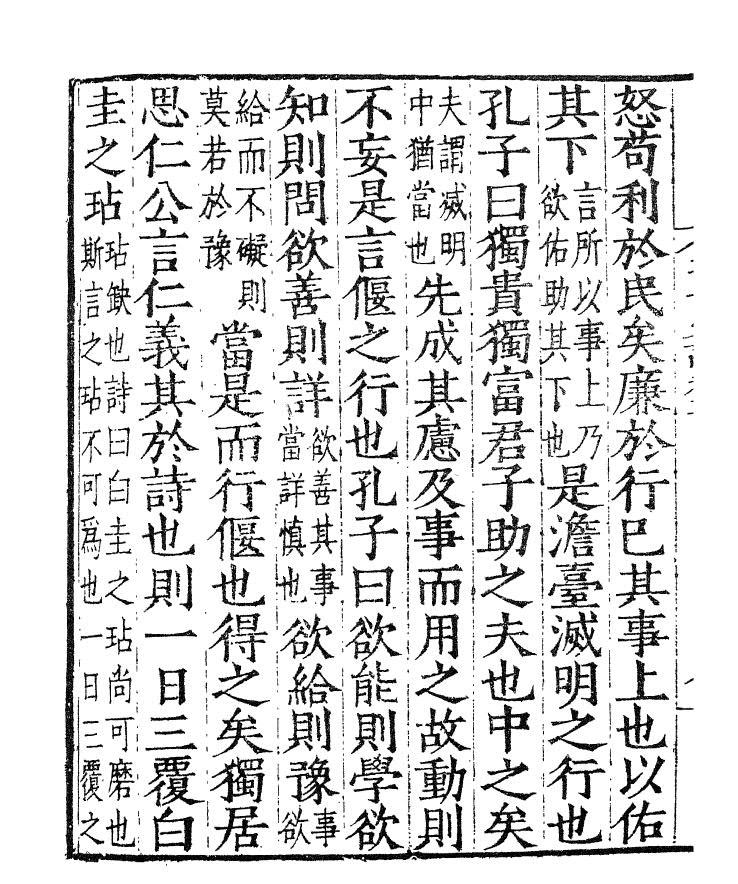 怒苟利於民矣廉於行巳其事上也以佑
其下言所以事上乃欲佑助其下也是澹臺滅明之行也
孔子曰獨貴獨富君子助之夫也中之矣
夫謂滅明中猶當也先成其慮及事而用之故動則
不妄是言偃之行也孔子曰欲能則學欲
知則問欲善則詳欲善其事當詳慎也欲給則豫事欲
給而不礙則莫若於豫當是而行偃也得之矣獨居
思仁公言仁義其於詩也則一日三覆白
圭之玷玷缺也詩曰白圭之玷尚可磨也斯言之玷不可爲也一日三覆之